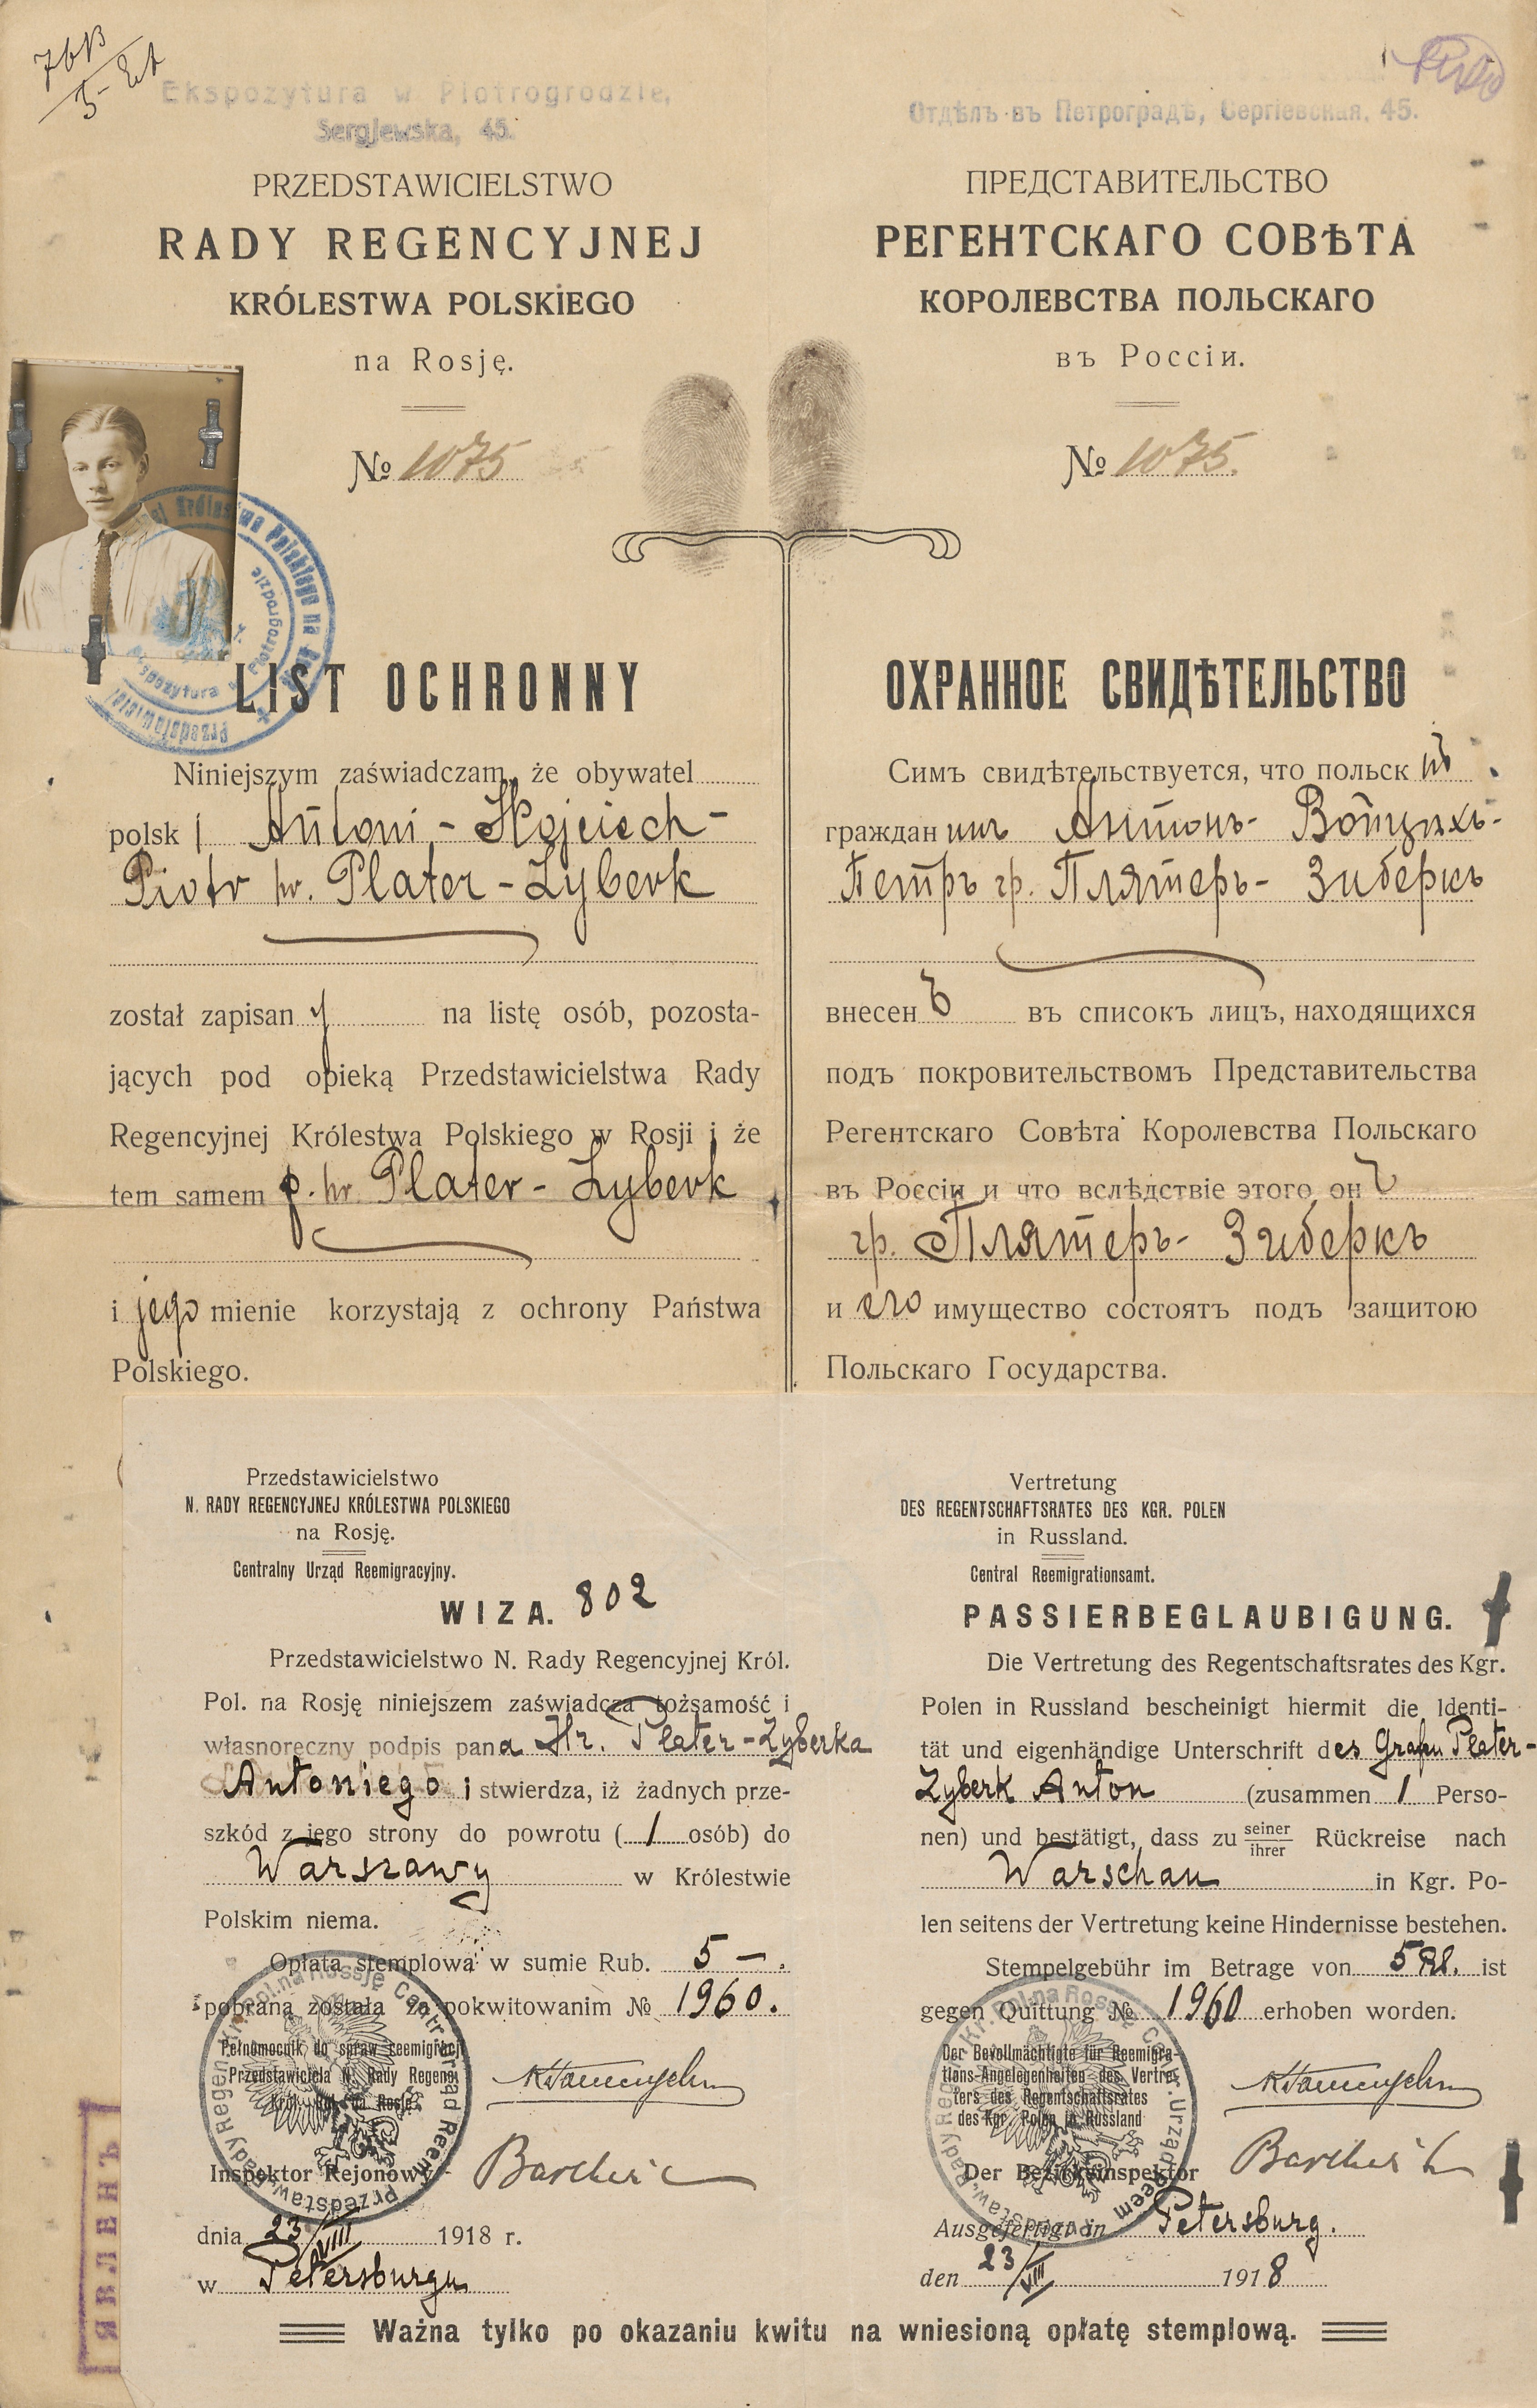 Ekspozytura w Piotrogrodzie,
Sergjewska, 45.
PRZEDSTAWICIELSTWO
RADY REGENCYJNEJ
KRÓLESTWA POLSKIEGO
na Rosję.
№ 1075
LIST OCHRONNY
Niniejszym zaświadczam, że obywatel
polski Antoni - Wojciech -
Piotr hr. Plater - Zyberk
został zapisany na listę osób, pozosta-
jących pod opieką Przedstawicielstwa Rady
Regencyjnej Królestwa Polskiego w Rosji i że
tem samem p. hr. Plater - Zyberk
i jego mienie korzystają z ochrony Państwa
Polskiego.
Отдѣлъ въ Петроградѣ, Сергіевская, 45.
ПРЕДСТАВИТЕЛЬСТВО
РЕГЕНТСКАГО СОВѢТА
КОРОЛЕВСТВА ПОЛЬСКАГО
въ Россіи.
№ 1075.
ОХРАННОЕ СВИДѢТЕЛЬСТВО
Симъ свидѣтельствуется, что польск
гражданинъ Антонъ - Войцѣхъ -
Петръ гр. Плятеръ - Зибергъ
внесенъ въ списокъ лицъ, находящихся
подъ покровительствомъ Представительства
Регентскаго Совѣта Королевства Польскаго
въ Россіи и что вслѣдствіе этого онъ
гр. Плятеръ - Зибергъ
и его имущество состоятъ подъ защитою
Польскаго Государства.
Przedstawicielstwo
N. RADY REGENCYJNEJ KRÓLESTWA POLSKIEGO
na Rosję.
Centralny Urząd Reemigracyjny.
WIZA. 802
Przedstawicielstwo N. Rady Regencyjnej Król.
Pol. na Rosję niniejszem zaświadcza tożsamość i
własnoręczny podpis pana Hr. Plater-Zyberka
Antoniego i stwierdza, iż żadnych prze-
szkód z jego strony do powrotu (1 osób) do
Warszawy w Królestwie
Polskim niema.
Opłata stemplowa w sumie Rub. 5 —.
pobraną została za pokwitowanim № 1960.
Pełnomocnik do spraw reemigracji
Przedstawiciela N. Rady Regenc.
Król. Pol. na Rosję.
Inspektor Rejonowy
dnia 23/VIII 1918 r.
w Petersburgu
Vertretung
DES REGENTSCHAFTSRATES DES KGR. POLEN
in Russland.
Central Reemigrationsamt.
PASSIERBEGLAUBIGUNG.
Die Vertretung des Regentschaftsrates des Kgr.
Polen in Russland bescheinigt hiermit die Identi-
tät und eigenhändige Unterschrift des Grafen Plater-
Zyberk Anton (zusammen 1 Perso-
nen) und bestätigt, dass zu seiner/ihrer Rückreise nach
Warschau in Kgr. Po-
len seitens der Vertretung keine Hindernisse bestehen.
Stempelgebühr im Betrage von 5 Rbl. ist
gegen Quittung № 1960 erhoben worden.
Der Bevollmächtigte für Reemigra-
tions-Angelegenheiten des Vertre-
ters des Regentschaftsrates
des Kgr. Polen in Russland
Der Bezirksinspektor
Ausgefertigt in Petersburg.
den 23/VIII 1918
Ważna tylko po okazaniu kwitu na wniesioną opłatę stemplową.
ЯВЛЕНЪ